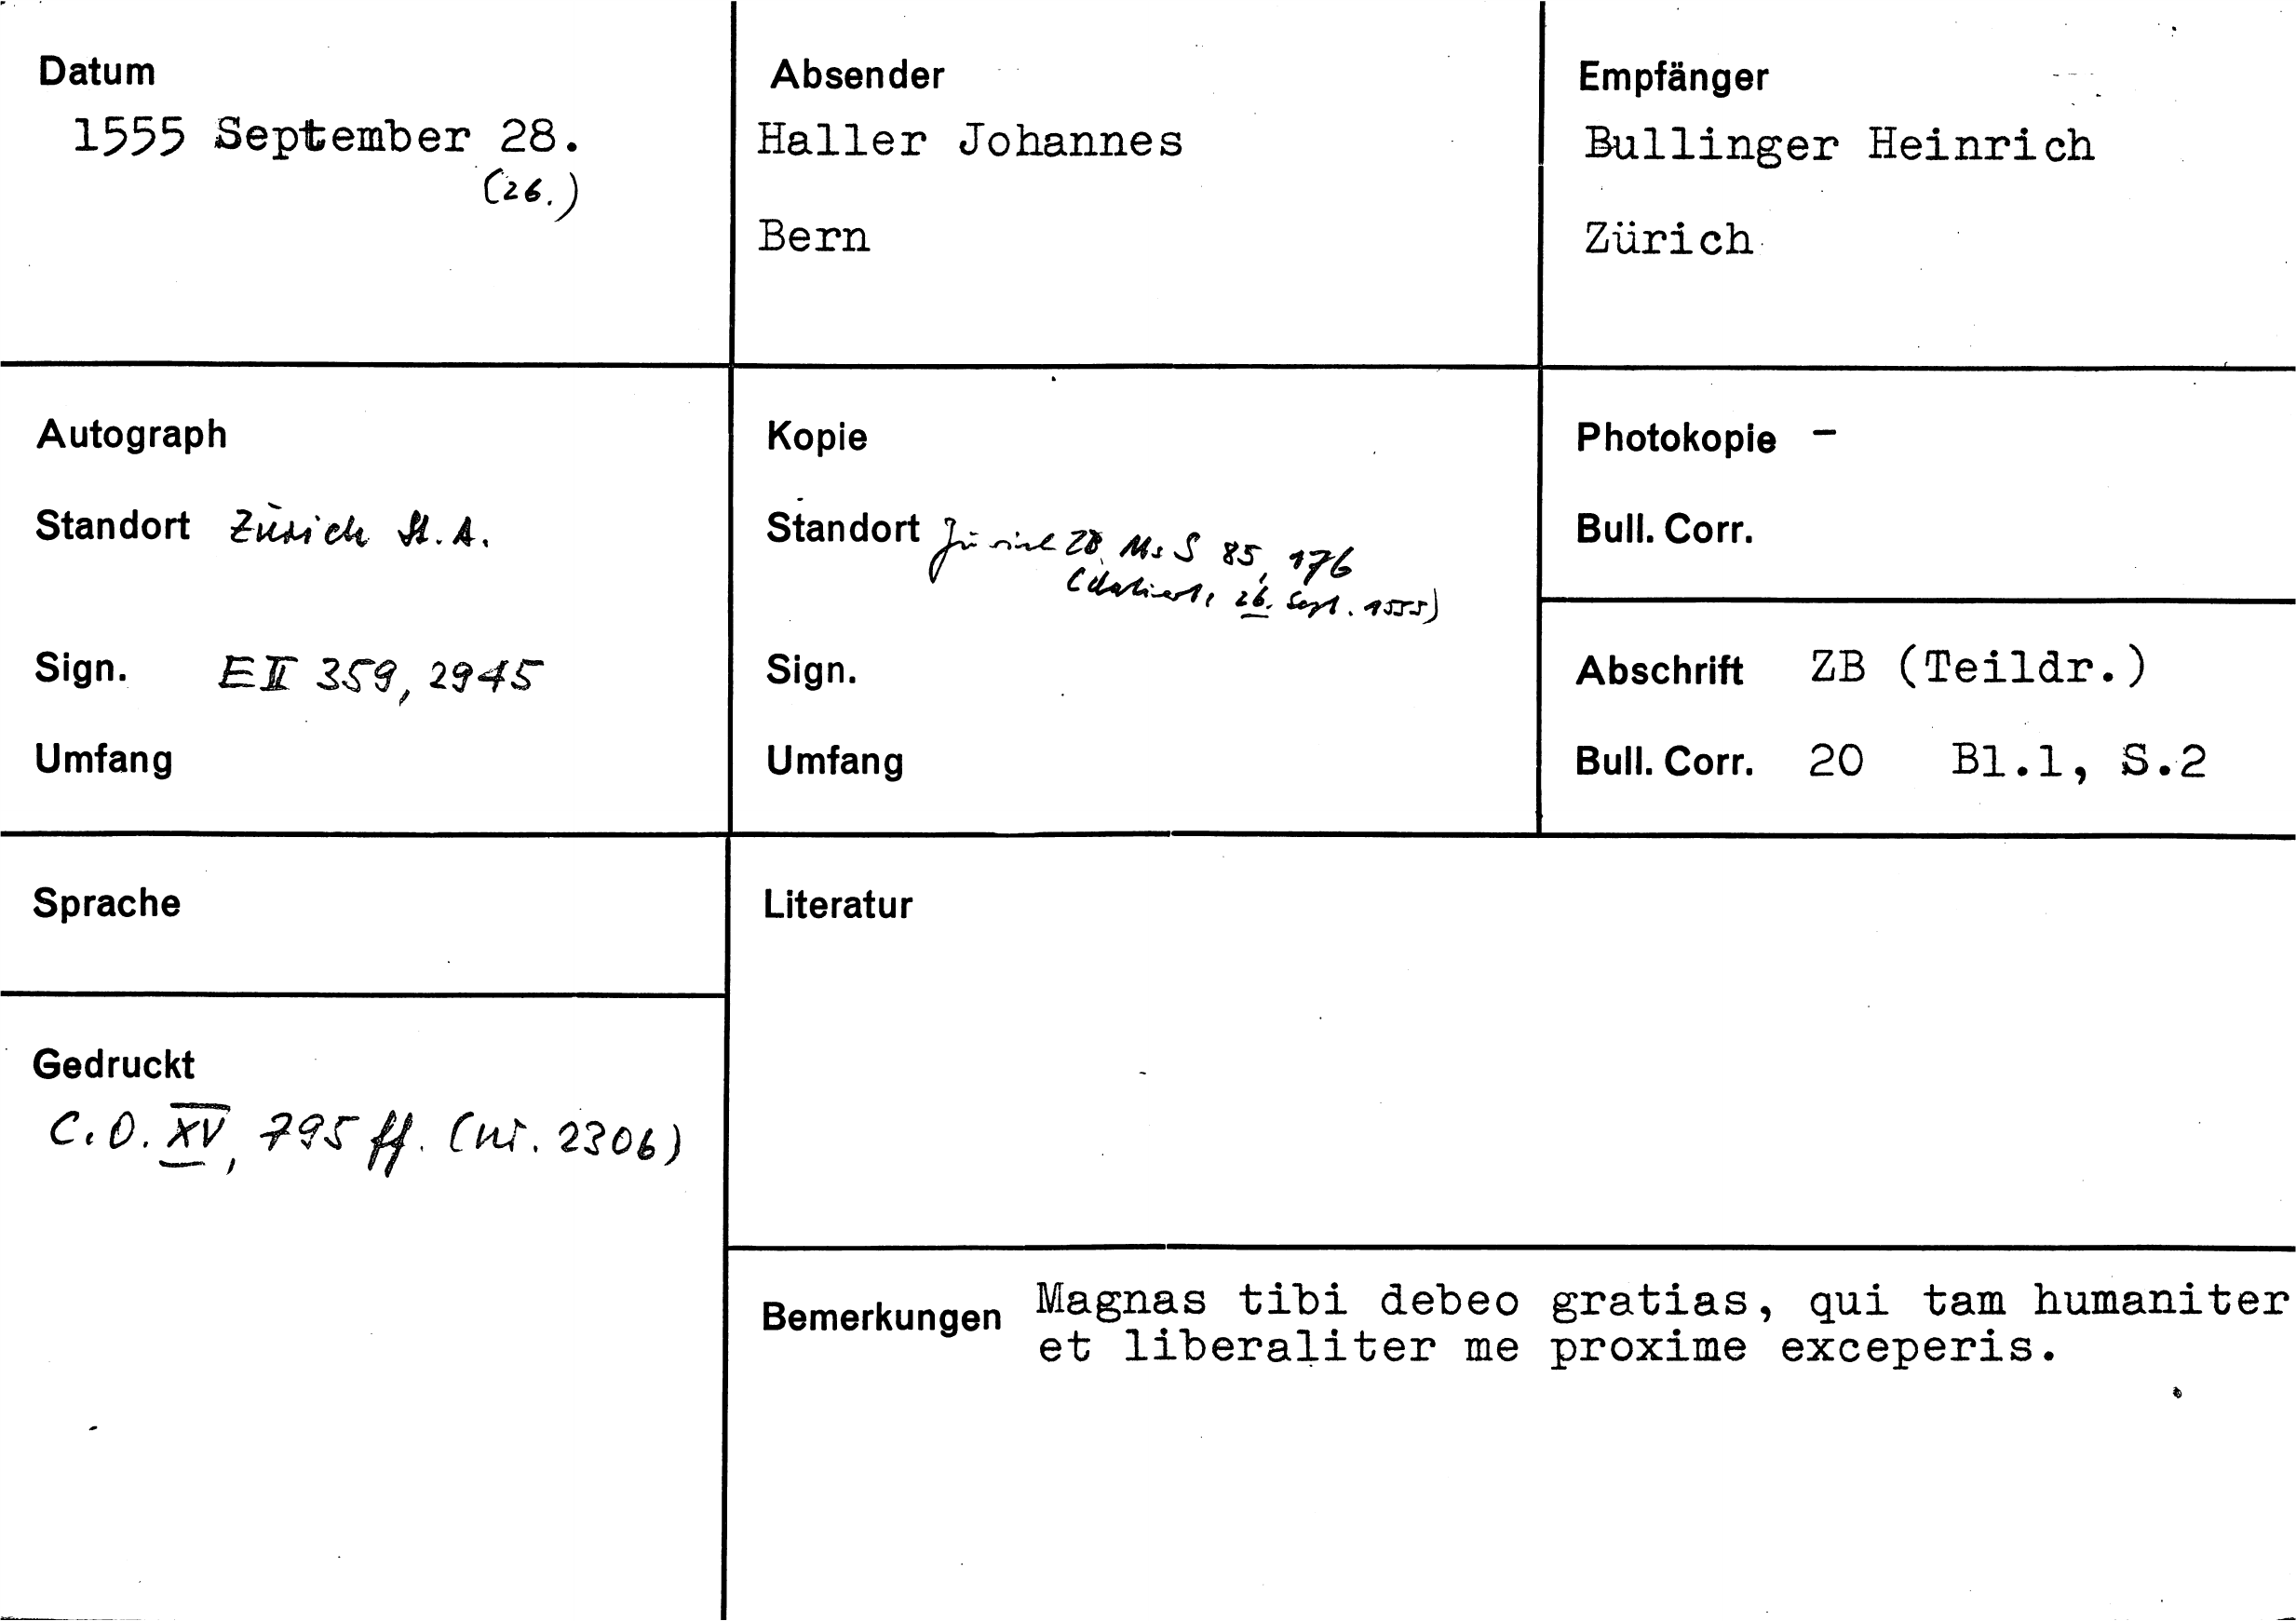 Datum
1555 September 28.
(26.)
Absender
Haller Johannes
Bern
Empfänger
Bullinger Heinrich
Zürich
Autograph
Standort Zürich St.A.
Sign. E II 359, 2945
Umfang
Kopie
Standort Zürich ZB, Ms S 85, 176
(datiert: 26. Sept. 1555)
Sign.
Umfang
Photokopie -
Bull. Corr.
Abschrift ZB (Teildr.)
Bull. Corr. 20 Bl.1, S.2
Sprache
Gedruckt
C.O. XV, 795 ff. (Nr. 2306)
Literatur
Bemerkungen Magnas tibi debeo gratias, qui tam humaniter
et liberaliter me proxime exceperis.